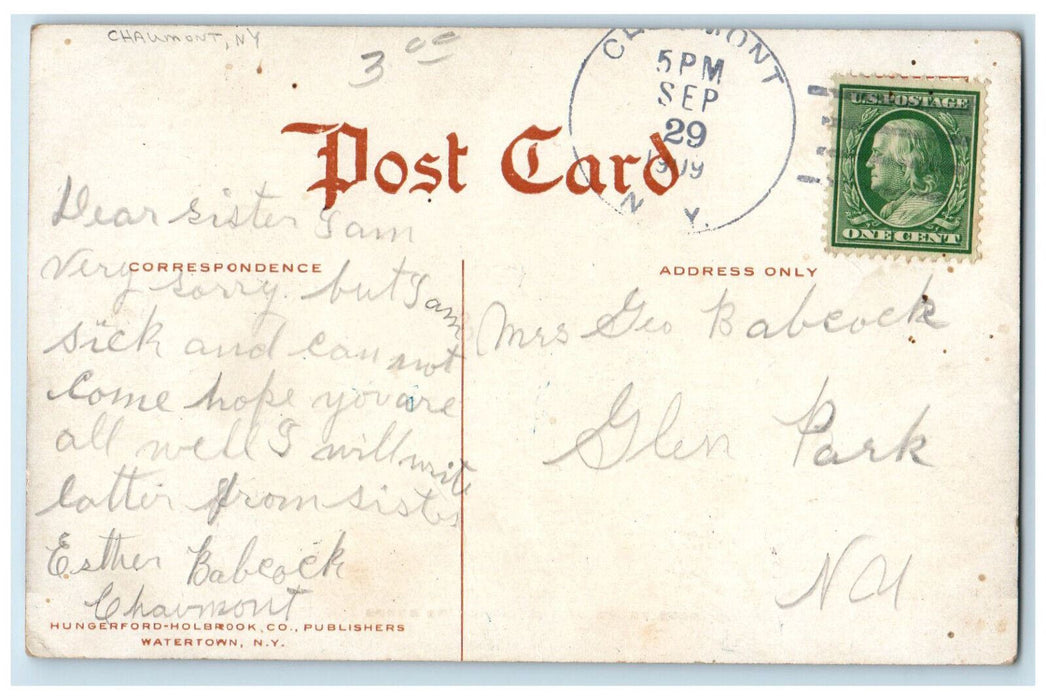 CHAUMONT, NY
3 00
CHAUMONT
5 PM
SEP
29
1909
N. Y.
U.S. POSTAGE
ONE CENT
Post Card
Dear sister I am
CORRESPONDENCE
very sorry. but I am
sick and can not
come hope you are
all well I will writ
latter from sister
Esther Babcock
Chaumont
HUNGERFORD-HOLBROOK CO., PUBLISHERS
WATERTOWN, N.Y.
ADDRESS ONLY
Mrs Geo Babcock
Glen Park
NY